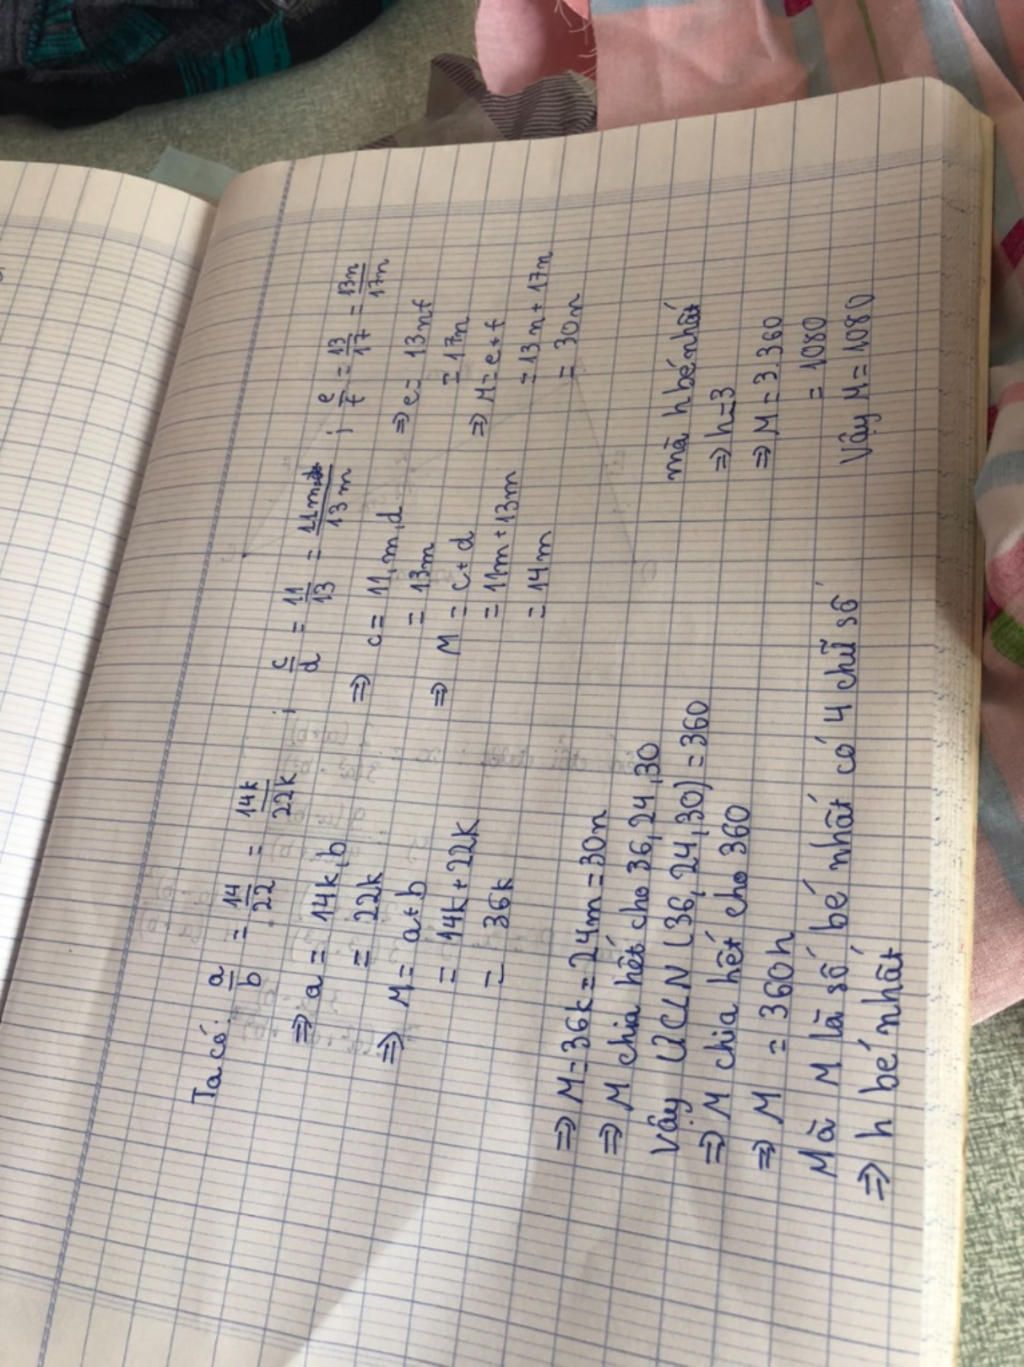 Ta có: a/b = 14/22 = 14k/22k ; c/d = 11/13 = 11m/13m ; e/f = 13/17 = 13n/17n
⇒ a = 14k, b = 22k
⇒ M = a+b
= 14k + 22k
= 36k
⇒ c = 11,m,d = 13m
⇒ M = c+d
= 11m + 13m
= 14m
⇒ e = 13nf = 17n
⇒ M = e+f
= 13n + 17n
= 30n
⇒ M = 36k = 24m = 30n
⇒ M chia hết cho 36, 24, 30
Vậy ƯCLN (36, 24, 30) = 360
⇒ M chia hết cho 360
⇒ M = 360h
Mà M là số bé nhất có 4 chữ số
⇒ h bé nhất
mà h bé nhất
⇒ h=3
⇒ M = 3.360
= 1080
Vậy M = 1080